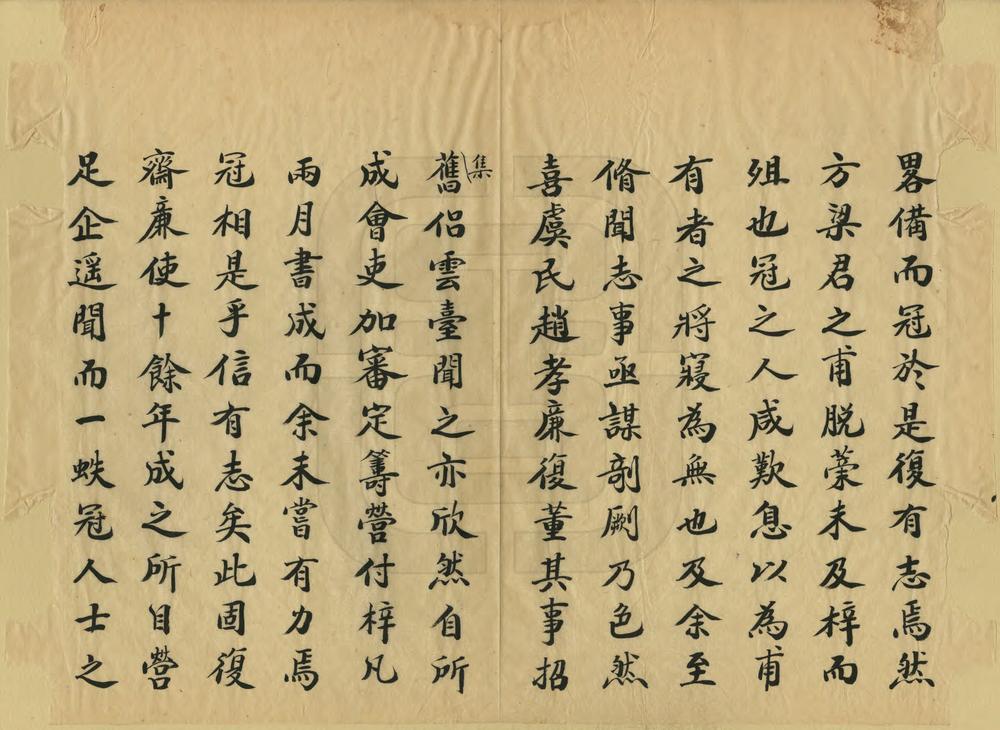 畧備而冠於是復有志焉然
方梁君之甫脱藁未及梓而
殂也冠之人咸歎息以為甫
有者之將寢為無也及余至
脩聞志事亟謀剞劂乃色然
喜虞民趙孝廉復董其事招
集舊侣雲臺聞之亦欣然自所
成會吏加審定籌營付梓凡
兩月書成而余未嘗有力焉
冠相是乎信有志矣此固復
齋亷使十餘年成之所㠯營
足企遥聞而一蚨冠人士之